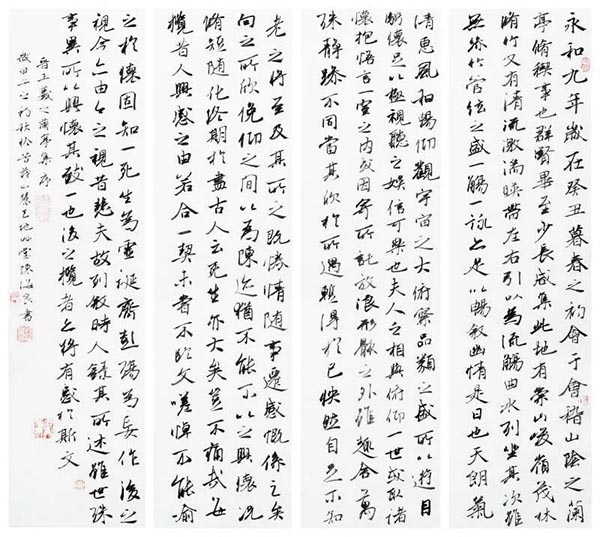 永和九年歲在癸丑暮春之初會于會稽山陰之蘭
亭脩稧事也群賢畢至少長咸集此地有崇山峻嶺茂林
脩竹又有清流激湍暎帶左右引以為流觴曲水列坐其次雖
無絲竹管弦之盛一觴一詠亦足以暢敘幽情是日也天朗氣
清惠風和暢仰觀宇宙之大俯察品類之盛所以遊目
騁懷足以極視聽之娛信可樂也夫人之相與俯仰一世或取諸
懷抱悟言一室之內或因寄所託放浪形骸之外雖趣舍萬
殊靜躁不同當其欣於所遇暫得於己怏然自足不知
老之將至及其所之既惓情隨事遷感慨係之矣
向之所欣俛仰之間以為陳迹猶不能不以之興懷況
脩短隨化終期於盡古人云死生亦大矣豈不痛哉每
攬昔人興感之由若合一契未嘗不臨文嗟悼不能喻
之於懷固知一死生為虛誕齊彭殤為妄作後之
視今亦由今之視昔悲夫故列敘時人錄其所述雖世殊
事異所以興懷其致一也後之攬者亦將有感於斯文
晉王羲之蘭亭集序
之初秋於 陳海良書